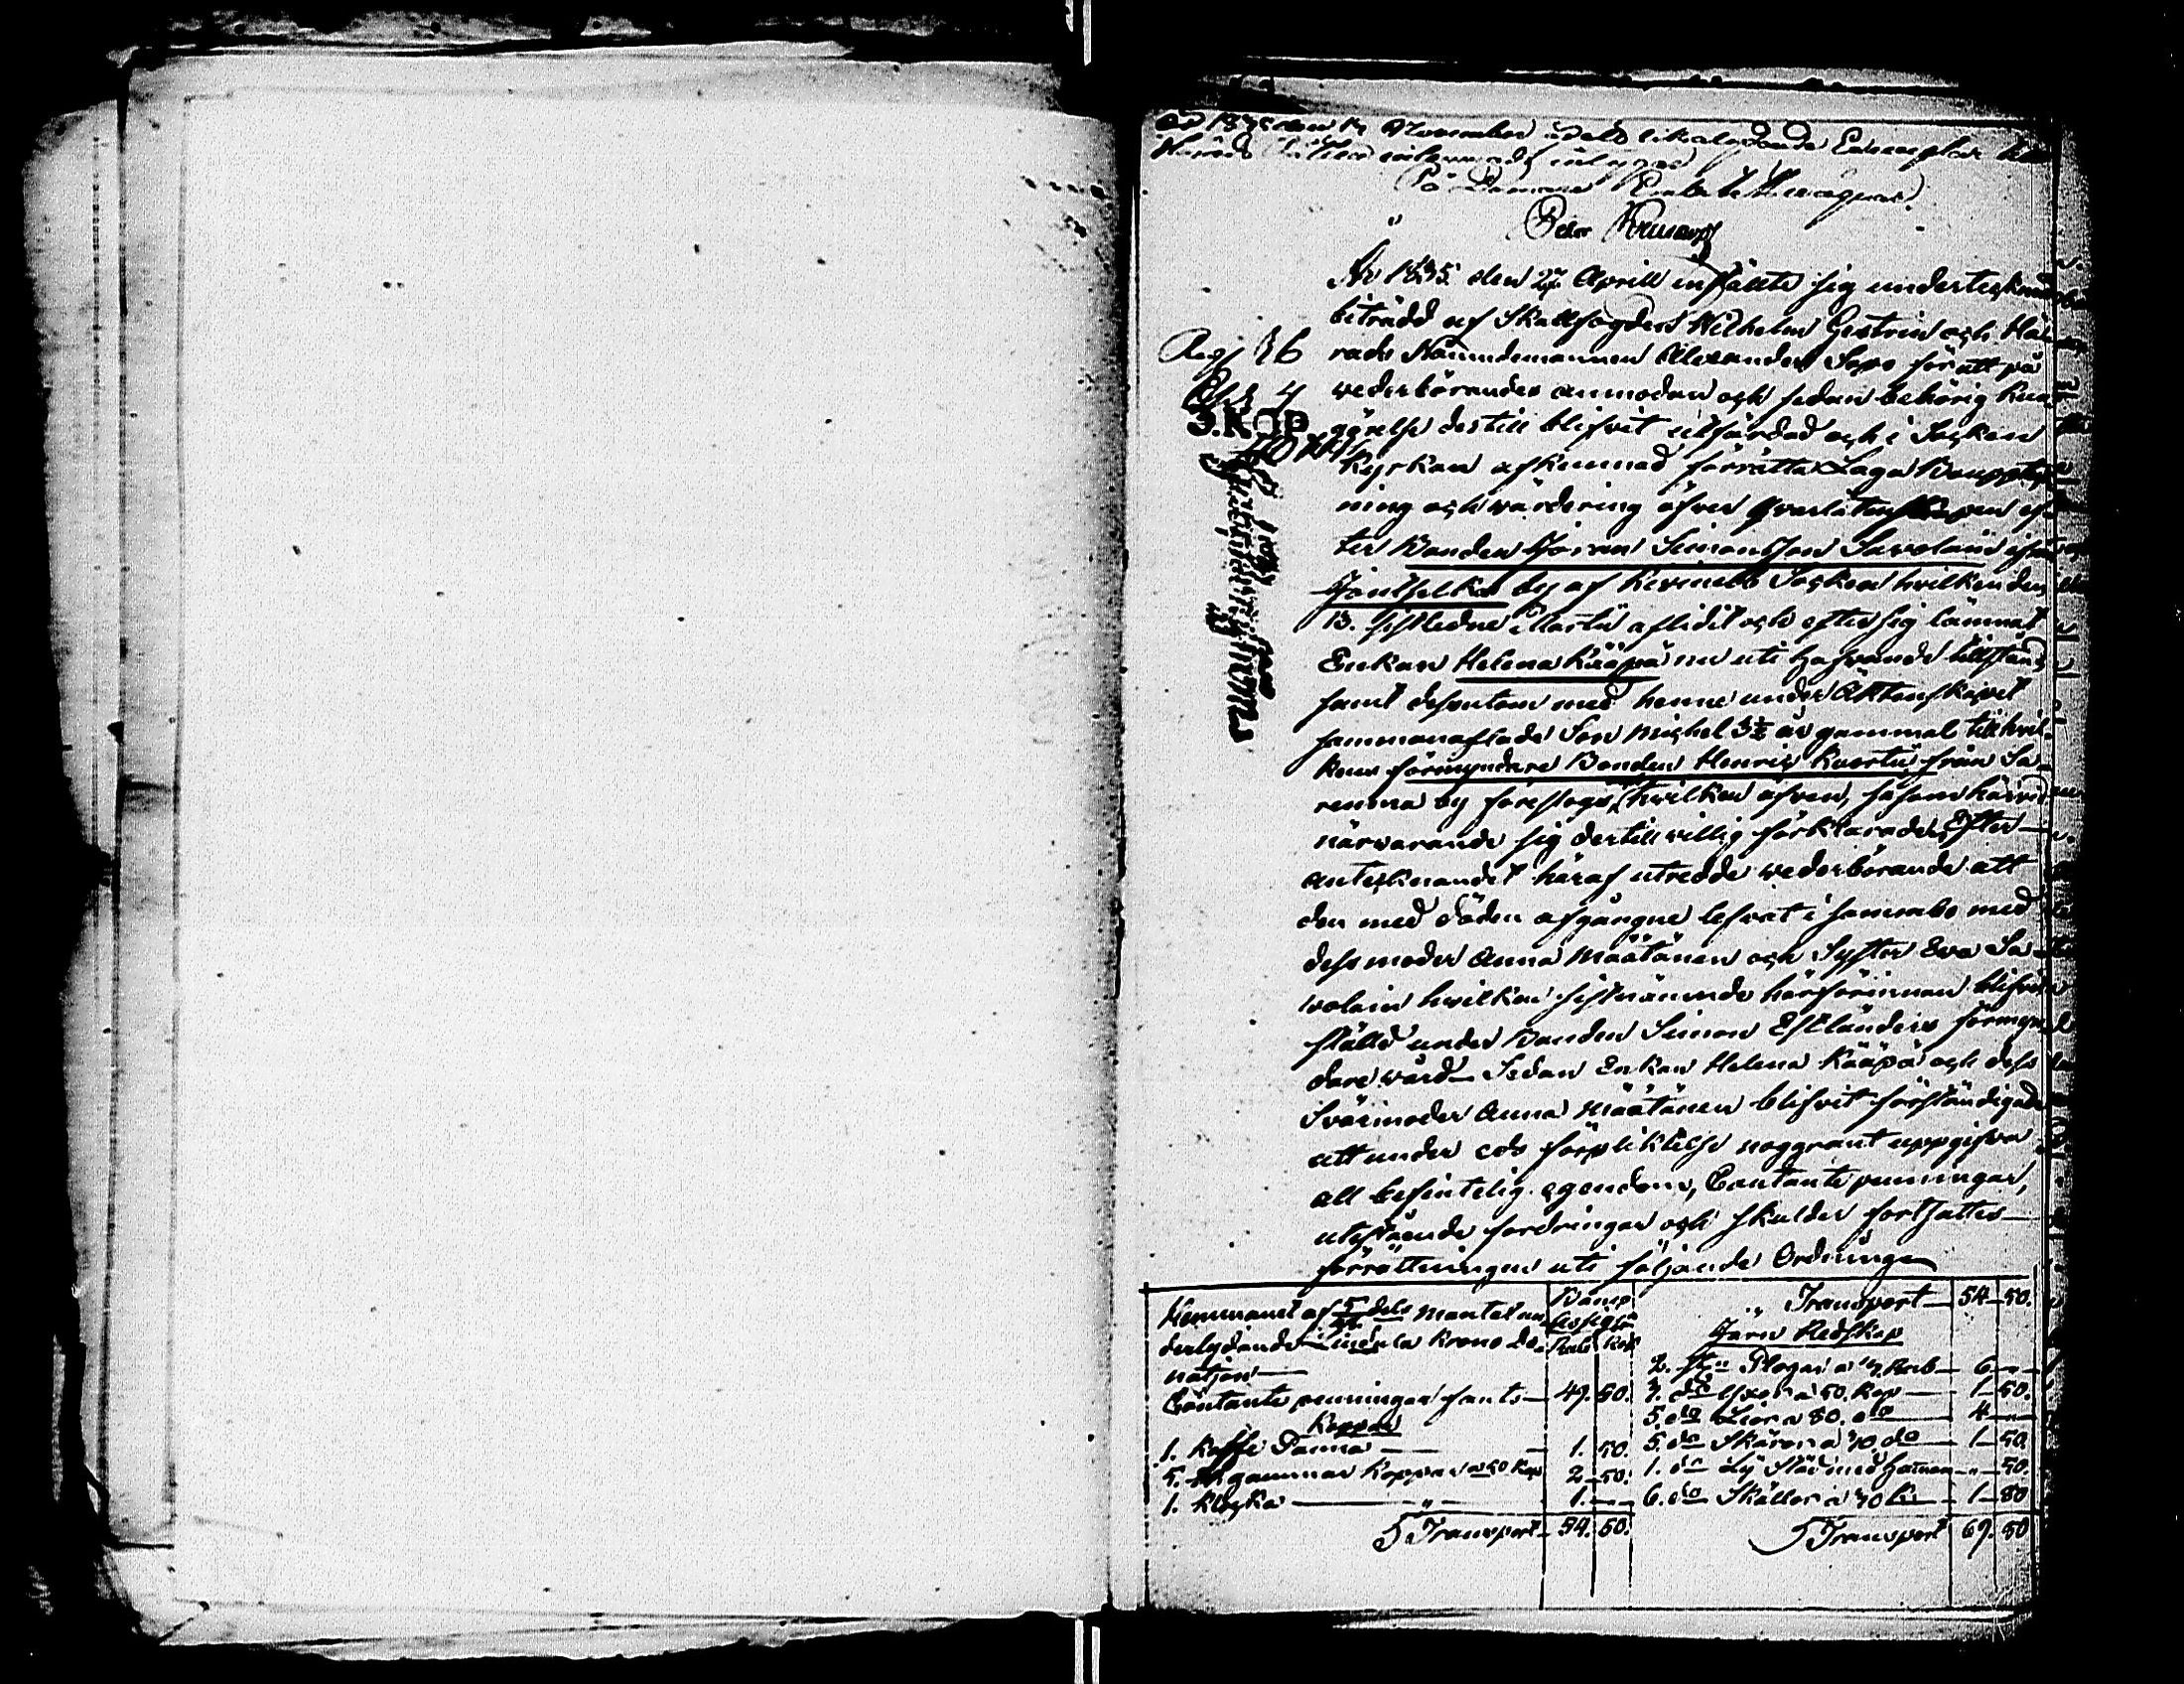 November i delo likalydande Exemplar
På Domare Embetets wägnar.
År 1835 den 27 Aprill inställte sig undertecknad
biträdd af Skallfogden Wilhelm Gestrin och Hä-
rads Nämndemannen Alexander Sopo för att på
wederbörandes anmodan och sedan behörig kun-
görelse dertill blifvit utfärdad och i Socken
Kyrkan afkunnad förrätta Laga Boupptek-
ning och wärdering öfver qvarlåtenskapen ef-
ter Bonden Göran Simonsson Savolain ifrån
Jäntselkä by af Kivinebb Socken hvilken den
13. sistledne Martii aflidit och efter sig lämnat
Enkan Helena Kääpä nu uti hafvande tillstånd
samt dessutom med henne under Äktenskapet
sammanaflade Son Michel 3½ år gammal till hvil-
kens förmyndare Bonden Henric Kuortti från Sa-
renma by föreslogs, hvilken äfven, såsom härvid
närvarande sig dertill willig förklarade, Efter
antecknandet häraf utredde wederbörande att
den med döden afgångne lefvat i sammbo med
dess moder Anna Määtänen och Syster Eva Sa-
volain hvilken sistnämnde härförinnan blifvit
ställd under Bonden Simon Estländers förmyn-
dare wård. Sedan Enkan Helena Kääpä och dess
Svärmoder Anna Määtänen blifvit förständigade
att under eds förpliktelse noggrant uppgifva
all befintelig egendom, Contante penningar,
utestående fordringar och skulder fortsattes
förrättningen uti följande Ordning
Hemmanet af 5/24 dels mantal un-
derlydande Lindula Krono do-
nation
Banco Assign:
Rub. Kop.
Contante penningar fants 49. 50.
Koppar
1. Kaffe Panna 1. 50.
5. st gammar Koppar a 50 Kop 2. 50.
1. Klocka " 1. —
Transport 54. 50.
Transport 54. 50.
Järn Redskap
2. st: Plogar a 3 Rub 6 —
3. do Yxor a 50. Kop 1. 50.
5. do Liar a 80. do 4 —
5. do Skäror a 30. do 1. 50.
1. do Ly städ med hamar " 50.
6. do Skällor a 30 K: 1. 80
Transport 69. 80